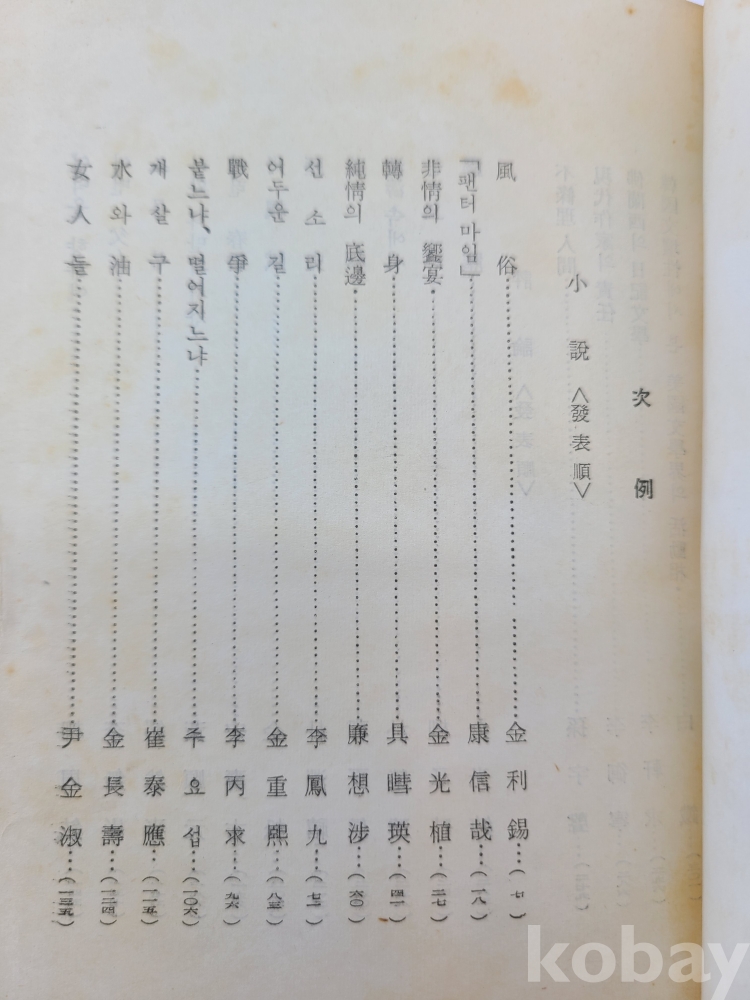 次例
小說 <發表順>
風俗………金利錫…(七)
「팬터마임」………康信哉…(一八)
非情의 饗宴………金光植…(二七)
轉身………具暳瑛…(四一)
純情의 底邊………廉想涉…(六〇)
선소리………李鳳九…(七二)
어두운 길………金重熙…(八三)
戰爭………李丙求…(九六)
붙느냐, 떨어지느냐………주요섭…(一〇六)
개살구………崔泰應…(一一五)
水와 油………金長壽…(一二四)
女人들………尹金淑…(一三五)
kobay